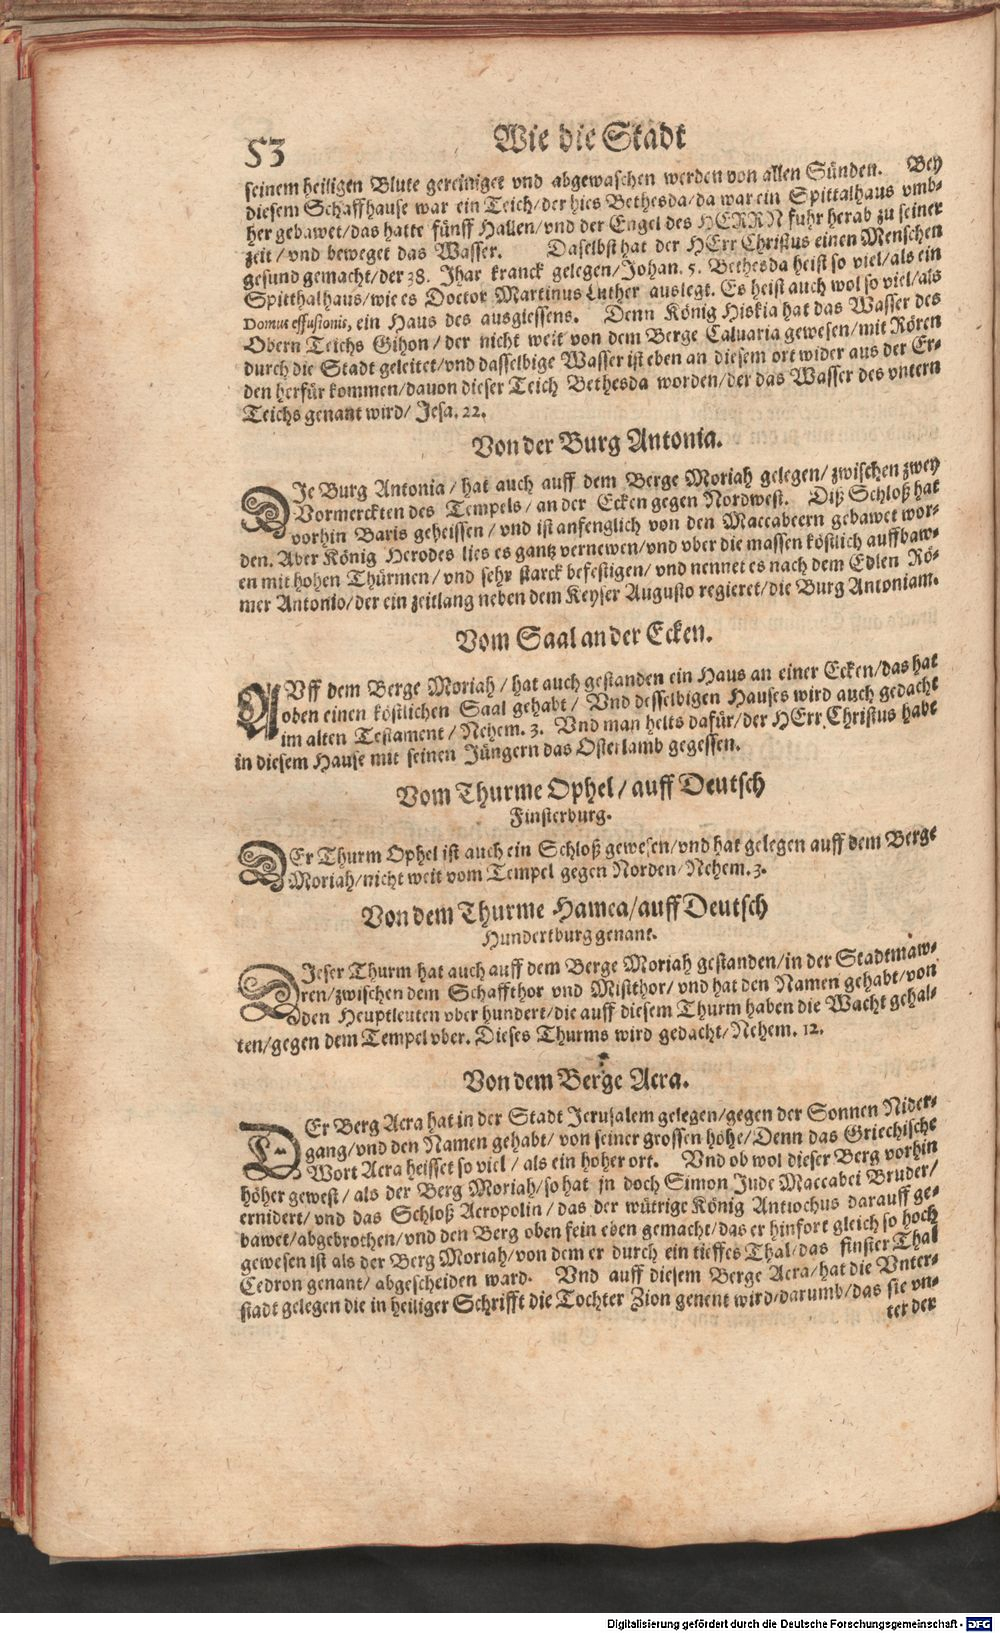 53
Wie die Stadt
seinem heiligen Blute gereiniget vnd abgewaschen werden von allen Sünden. Bey
diesem Schaffhause war ein Teich/der hies Bethesda/da war ein Spittalhaus vmb-
her gebawet/das hatte fünff Hallen/vnd der Engel des HERRN fuhr herab zu seiner
zeit/vnd beweget das Wasser. Daselbst hat der HErr Christus einen Menschen
gesund gemacht/der 38. Jhar kranck gelegen/Johan. 5. Bethesda heist so viel/als ein
Spitthalhaus/wie es Doctor Martinus Luther auslegt. Es heist auch wol so viel/als
Domus effusionis, ein Haus des ausgiessens. Denn König Hiskia hat das Wasser des
Obern Teichs Gihon/der nicht weit von dem Berge Caluaria gewesen/mit Rören
durch die Stadt geleitet/vnd dasselbige Wasser ist eben an diesem ort wider aus der Er-
den herfür kommen/dauon dieser Teich Bethesda worden/der das Wasser des vntern
Teichs genant wird/Jesa. 22.
Von der Burg Antonia.
DIe Burg Antonia/hat auch auff dem Berge Moriah gelegen/zwischen zwey
Vormerckten des Tempels/an der Ecken gegen Nordwest. Diß Schloß hat
vorhin Baris geheissen/vnd ist anfenglich von den Maccabeern gebawet wor-
den. Aber König Herodes lies es gantz vernewen/vnd vber die massen köstlich auffbaw-
en mit hohen Thürmen/vnd sehr starck befestigen/vnd nennet es nach dem Edlen Rö-
mer Antonio/der ein zeitlang neben dem Keyser Augusto regieret/die Burg Antoniam.
Vom Saal an der Ecken.
AUff dem Berge Moriah/hat auch gestanden ein Haus an einer Ecken/das hat
oben einen köstlichen Saal gehabt/Vnd desselbigen Hauses wird auch gedacht
im alten Testament/Nehem. 3. Vnd man helts dafür/der HErr Christus habe
in diesem Hause mit seinen Jüngern das Osterlamb gegessen.
Vom Thurme Ophel/auff Deutsch
Finsterburg.
DEr Thurm Ophel ist auch ein Schloß gewesen/vnd hat gelegen auff dem Berge
Moriah/nicht weit vom Tempel gegen Norden/Nehem. 3.
Von dem Thurme Hamea/auff Deutsch
Hundertburg genant.
DIeser Thurm hat auch auff dem Berge Moriah gestanden/in der Stadtmaw-
ren/zwischen dem Schaffthor vnd Mistthor/vnd hat den Namen gehabt/von
den Heuptleuten vber hundert/die auff diesem Thurm haben die Wacht gehal-
ten/gegen dem Tempel vber. Dieses Thurms wird gedacht/Nehem. 12.
Von dem Berge Acra.
DEr Berg Acra hat in der Stadt Jerusalem gelegen/gegen der Sonnen Nider-
gang/vnd den Namen gehabt/von seiner grossen höhe/Denn das Griechische
Wort Acra heisset so viel/als ein hoher ort. Vnd ob wol dieser Berg vorhin
höher gewest/als der Berg Moriah/so hat jn doch Simon Jude Maccabei Bruder/
ernidert/vnd das Schloß Acropolin/das der wütrige König Antiochus darauff ge-
bawet/abgebrochen/vnd den Berg oben fein eben gemacht/das er hinfort gleich so hoch
gewesen ist als der Berg Moriah/von dem er durch ein tieffes Thal/das finster Thal
Cedron genant/abgescheiden ward. Vnd auff diesem Berge Acra/hat die Vnter-
stadt gelegen die in heiliger Schrifft die Tochter Zion genent wird/darumb/das sie vn-
ter der
Digitalisierung gefördert durch die Deutsche Forschungsgemeinschaft - DFG